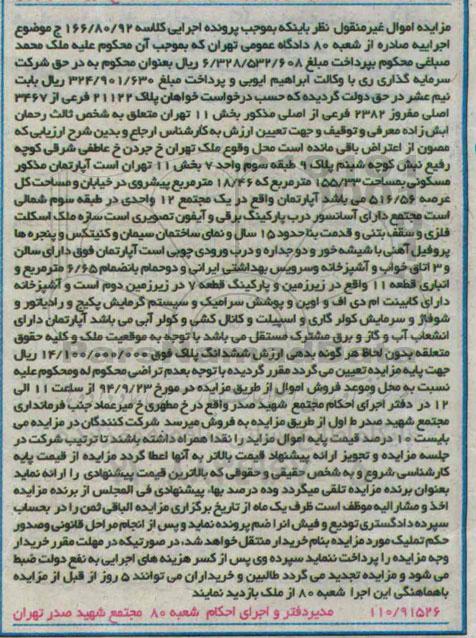 مزایده اموال غیرمنقول نظر باینکه بموجب پرونده اجرایی کلاسه ۱۶۶/۸۰/۹۲ ج موضوع
اجراییه صادره از شعبه ۸۰ دادگاه عمومی تهران که بموجب آن محکوم علیه ملک محمد
صباغی محکوم بپرداخت مبلغ ۶/۳۲۸/۵۳۲/۶۰۸ ریال بعنوان محکوم به در حق شرکت
سرمایه گذاری ری با وکالت ابراهیم ایوبی و پرداخت مبلغ ۳۲۴/۹۰۱/۶۳۰ ریال بابت
نیم عشر در حق دولت گردیده که حسب درخواست خواهان پلاک ۲۱۱۲۲ فرعی از ۳۴۶۷
اصلی مفروز ۲۳۸۲ فرعی از اصلی مذکور بخش ۱۱ تهران متعلق به شخص ثالث رحمان
ابش زاده معرفی و توقیف و جهت تعیین ارزش به کارشناس ارجاع و بدین شرح ارزیابی که
مصون از اعتراض باقی مانده است محل وقوع ملک تهران خ جردن خ عاطفی شرقی کوچه
رفیع نبش کوچه شبنم پلاک ۹ طبقه سوم واحد ۷ بخش ۱۱ تهران است آپارتمان مذکور
مسکونی بمساحت ۱۵۵/۳۳ مترمربع که ۱۸/۴۶ مترمربع پیشروی در خیابان و مساحت کل
عرصه ۵۱۶/۵۶ می باشد آپارتمان واقع در یک مجتمع ۱۲ واحدی در طبقه سوم شمالی
است مجتمع دارای آسانسور درب پارکینگ برقی و آیفون تصویری است سازه ملک اسکلت
فلزی و سقف بتنی و قدمت بنا حدود ۱۵ سال و نمای ساختمان سیمان و کنیتکس و پنجره ها
پروفیل آهنی با شیشه خور و دو جداره و درب ورودی چوبی است آپارتمان فوق دارای سالن
و ۳ اتاق خواب و آشپزخانه وسرویس بهداشتی ایرانی و دوحمام بانضمام ۶/۶۵ مترمربع و
انباری قطعه ۱۱ واقع در زیرزمین و پارکینگ قطعه ۷ در زیرزمین دوم است و آشپزخانه
دارای کابینت ام دی اف و اوپن و پوشش سرامیک و سیستم گرمایش پکیج و رادیاتور و
شوفاژ و سرمایش کولر گازی و اسپیلت و کانال کشی و کولر آبی می باشد آپارتمان دارای
انشعاب آب و گاز و برق مشترک مستقل می باشد با توجه به موقعیت ملک و کلیه حقوق
متعلقه بدون لحاظ هر گونه بدهی ارزش ششدانگ پلاک فوق ۱۴/۱۰۰/۰۰۰/۰۰۰ ریال
جهت پایه مزایده تعیین می گردد مقرر گردیده با توجه بعدم تراضی محکوم له ومحکوم علیه
نسبت به محل وموعد فروش اموال از طریق مزایده در مورخ ۹۴/۹/۲۳ از ساعت ۱۱ الی
۱۲ در دفتر اجرای احکام مجتمع شهید صدر واقع در خ مطهری خ میرعماد جنب فرمانداری
مجتمع شهید صدر ط اول از طریق مزایده به فروش میرسد شرکت کنندگان در مزایده می
بایست ۱۰ درصد قیمت پایه اموال مزاید را نقدا همراه داشته باشند تا ترتیب شرکت در
جلسه مزایده و تجویز ارائه پیشنهاد قیمت بالاتر به آنها اعطا گردد مزایده از قیمت پایه
کارشناسی شروع و به شخص حقیقی و حقوقی که بالاترین قیمت پیشنهادی را ارائه نماید
بعنوان برنده مزایده تلقی میگردد وده درصد بها، پیشنهادی فی المجلس از برنده مزایده
اخذ و مشارالیه موظف است ظرف یک ماه از تاریخ برگزاری مزایده الباقی ثمن را در بحساب
سپرده دادگستری تودیع و فیش انرا ضم پرونده نماید و پس از انجام مراحل قانونی وصدور
حکم تملیک مورد مزایده بنام خریدار منتقل خواهد شد، در صورتیکه در مهلت مقرر خریدار
وجه مزایده را پرداخت ننماید سپرده وی پس از کسر هزینه های اجرایی به نفع دولت ضبط
می شود و مزایده تجدید می گردد طالبین و خریداران می توانند ۵ روز از قبل از مزایده
باهماهنگی این اجرا شعبه ۸۰ از ملک بازدید نمایند
۱۱۰/۹۱۵۲۶ مدیردفتر و اجرای احکام شعبه ۸۰ مجتمع شهید صدر تهران